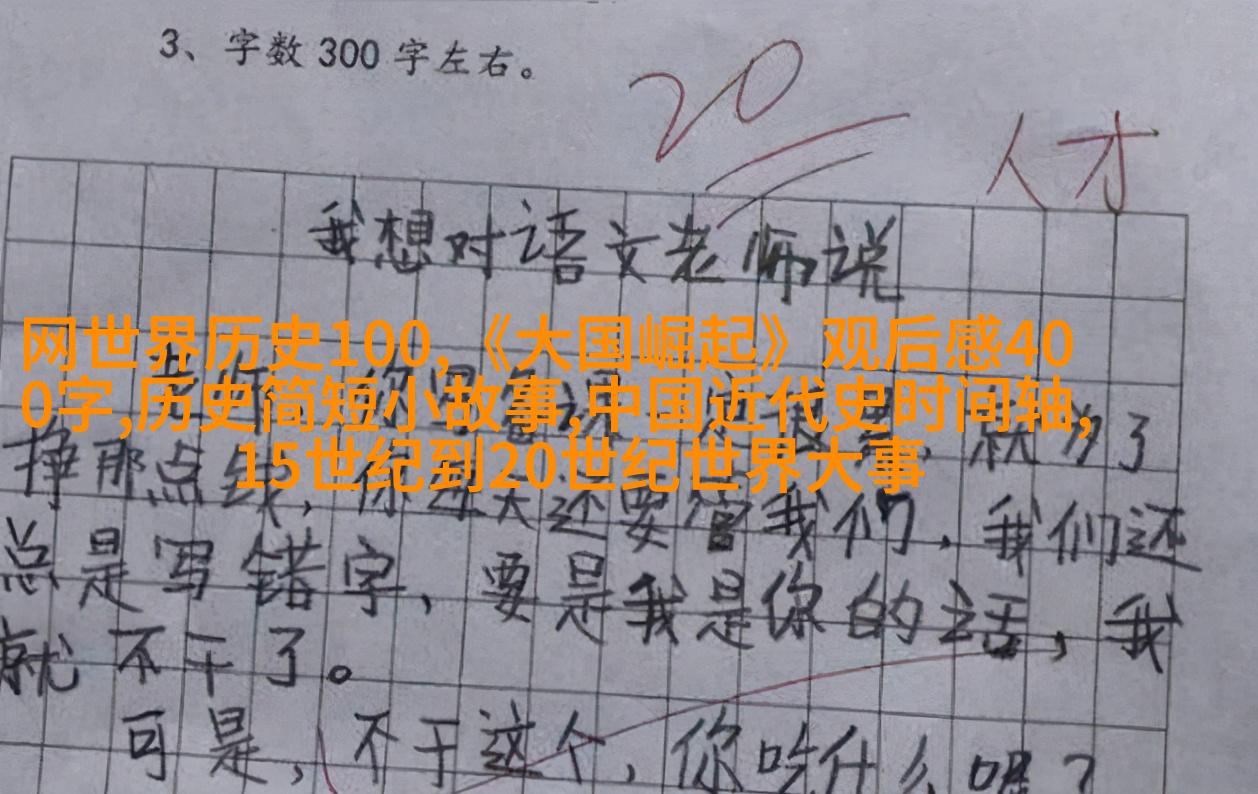 3、字数300字左右。
20
人才
我想对语文老师说
网世界历史100,《大国崛起》观后感40
0字,历史简短小故事,中国近代史时间轴,
15世纪到20世纪世界大事
了
挣那点钱,你还要管我们,我们还
总是写错字,要是我是你的话,我
就不干了。
可是,不干这个,你吃什么呢?